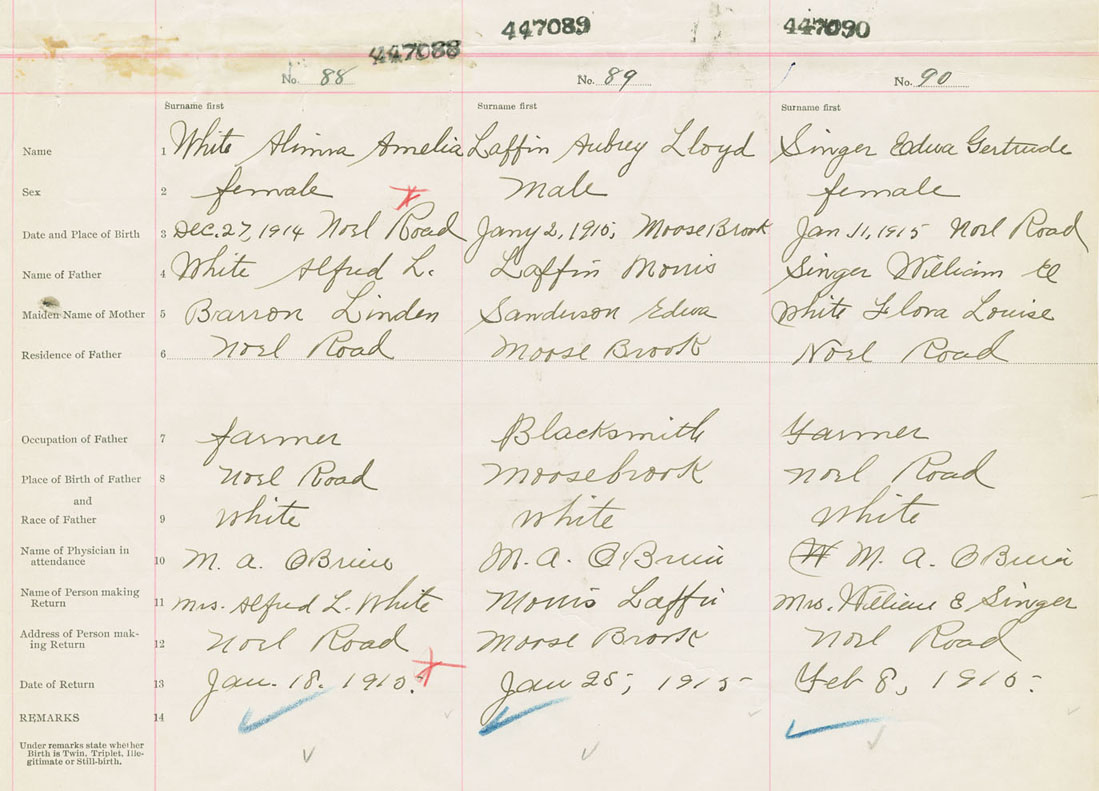 447088 447089 447090
No. 88 No. 89 No. 90
Surname first Surname first Surname first
Name 1 White Almira Amelia Laffin Aubrey Lloyd Singer Edwa Gertrude
Sex 2 female Male female
Date and Place of Birth 3 Dec. 27, 1914 Noel Road Jany 2, 1915, Moose Brook Jan 11, 1915 Noel Road
Name of Father 4 White Alfred L. Laffin Morris Singer William E
Maiden Name of Mother 5 Barron Linden Sanderson Edwa White Flora Louise
Residence of Father 6 Noel Road Moose Brook Noel Road
Occupation of Father 7 farmer Blacksmith Farmer
Place of Birth of Father 8 Noel Road Moosebrook Noel Road
and
Race of Father 9 White White White
Name of Physician in
attendance 10 M. A. O'Brien M. A. O'Brien M. A. O'Brien
Name of Person making
Return 11 Mrs. Alfred L. White Morris Laffin Mrs. William E Singer
Address of Person mak-
ing Return 12 Noel Road Moose Brook Noel Road
Date of Return 13 Jan. 18. 1915. Jan 25, 1915 Feb 8, 1915.
REMARKS 14
Under remarks state whether
Birth is Twin, Triplet, Ille-
gitimate or Still-birth.